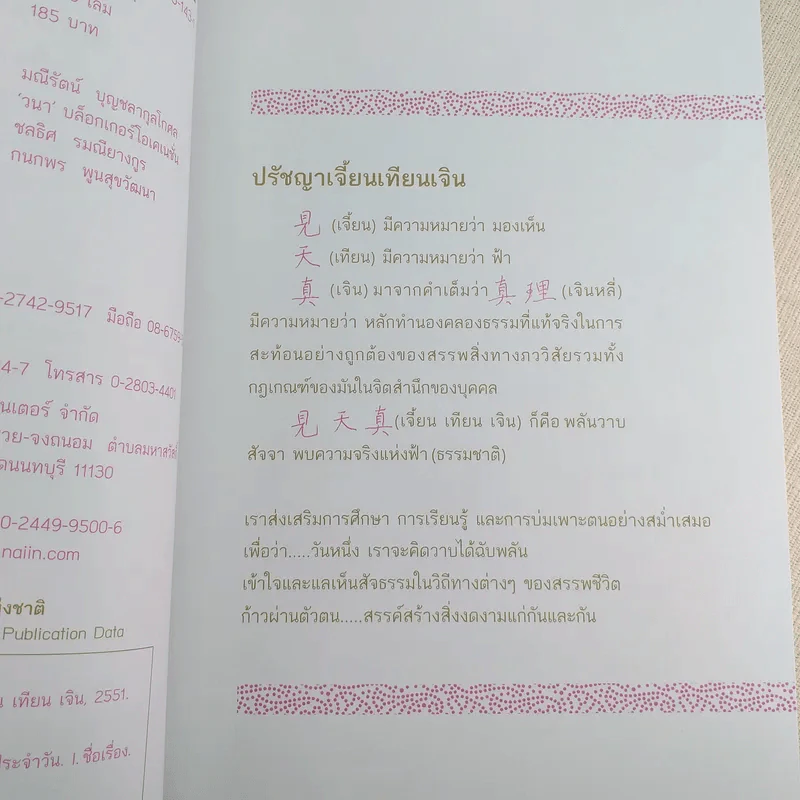 185 บาท
มณีรัตน์ บุญชลากุลโกศล
'วนา' บล็อกเกอร์โอเคเนชั่น
ชลธิศ รมณียางกูร
กนกพร พูนสุขวัฒนา
-2742-9517 มือถือ 08-6759-
4-7 โทรสาร 0-2803-4401
นเตอร์ จำกัด
วย-จงถนอม ตำบลมหาสวัสดิ์
นนทบุรี 11130
0-2449-9500-6
naiin.com
ชาติ
Publication Data
เทียน เจิน, 2551.
ประจำวัน. I. ชื่อเรื่อง.
ปรัชญาเจี้ยนเทียนเจิน
見 (เจี้ยน) มีความหมายว่า มองเห็น
天 (เทียน) มีความหมายว่า ฟ้า
真 (เจิน) มาจากคำเต็มว่า 真理 (เจินหลี่)
มีความหมายว่า หลักทำนองคลองธรรมที่แท้จริงในการ
สะท้อนอย่างถูกต้องของสรรพสิ่งทางภววิสัยรวมทั้ง
กฎเกณฑ์ของมันในจิตสำนึกของบุคคล
見天真 (เจี้ยน เทียน เจิน) ก็คือ พลันวาบ
สัจจา พบความจริงแห่งฟ้า (ธรรมชาติ)
เราส่งเสริมการศึกษา การเรียนรู้ และการบ่มเพาะตนอย่างสม่ำเสมอ
เพื่อว่า.....วันหนึ่ง เราจะคิดวาบได้ฉับพลัน
เข้าใจและแลเห็นสัจธรรมในวิถีทางต่างๆ ของสรรพชีวิต
ก้าวผ่านตัวตน.....สรรค์สร้างสิ่งงดงามแก่กันและกัน